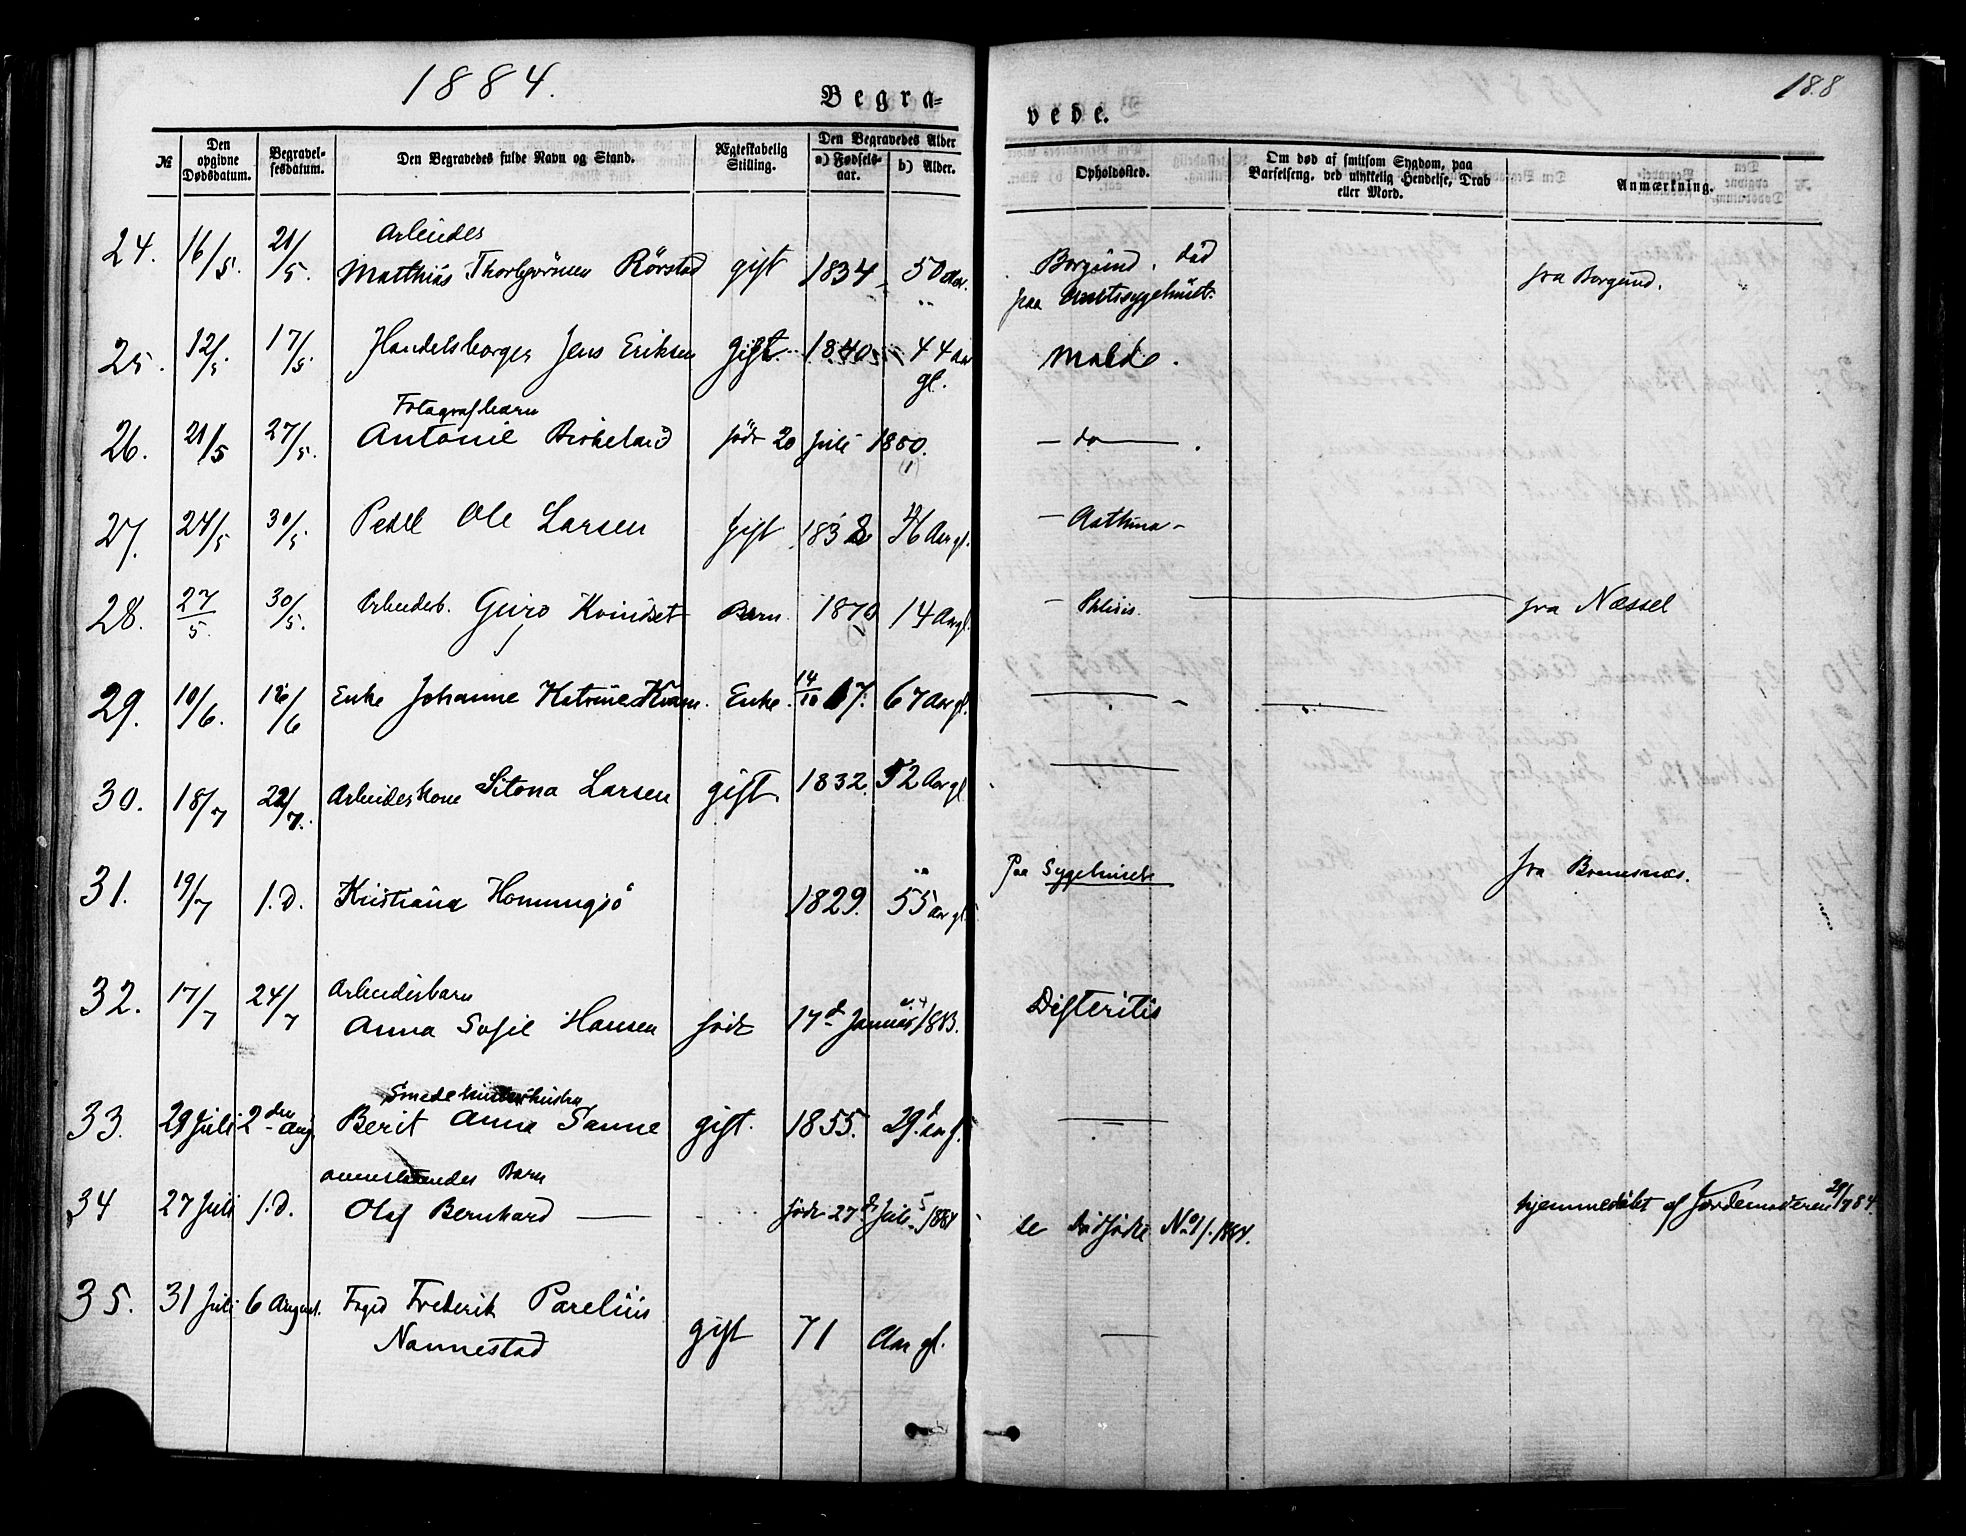 1884.
Begra=
vede.
188
№
Den opgivne Dødsdatum.
Begravel-sesdatum.
Den Begravedes fulde Navn og Stand.
Ægteskabelig Stilling.
Den Begravedes Alder
a) Fødsels-aar.
b) Alder.
Opholdssted.
Om død af smitsom Sygdom, paa Barselseng, ved ulykkelig Hendelse, Drab eller Mord.
Anmærkning.
Arbeider
24. 16/5. 21/5. Matthias Rörstad gift 1834 50 Aar. Borgund. död fra Borgund.
paa Amtssygehuset.
25. 12/5 17/5 Handelsborger Jens Eriksen gift. 1840 44 Aar gl. Molde.
Fotografbarn
26. 21/5 27/5. Antonie Birkeland födt 20 Juli 1880. — do — .
27. 24/5 30/5 Ole Larsen gift 1838 46 Aar gl. — Asthma —
28. 27/5. 30/5. Arbeidsb. Guro Kvindset Barn 1870 14 Aar gl. — Phtisis. — fra Næsset
29. 10/6. 16/6 Enke Johanne Katrine Kvam. Enke. 14/10 17. 67 Aar gl.
30. 18/7 22/7. Arbeiderkone Larsen gift. 1832. 52 Aar gl.
31. 19/7 f.d. Kristiana 1829. 55 Aar gl. Paa Sygehuset fra Bremsnæs.
Arbeidersbarn
32. 17/7 24/7 Anna Sofie Hansen födt 17de Januar 1883. Difteritis
33. 29 Juli 2den Aug. Berit Anna Sanne gift. 1855. 29. Aar g.
Barn
34 27 Juli f.d. Olaf Bernhard — födt 27de Juli 1884 se dödfödte No 1/1884. hjemmedöbt af Jordemoderen 28/7 84.
35. 31 Juli 6 August. Foged Frederik Parelius
Nannestad gift 71 Aar gl. —